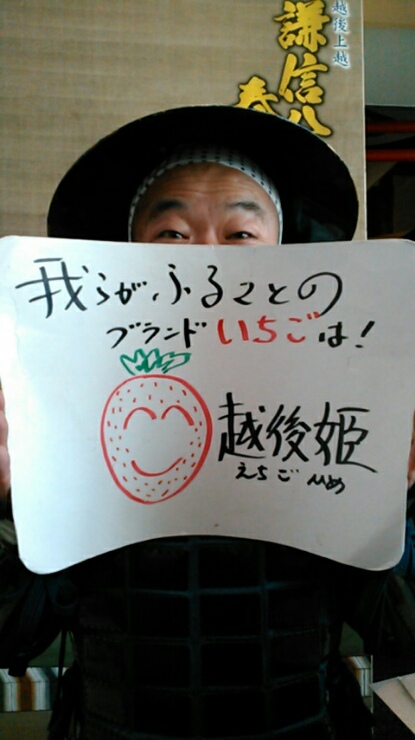 越後上越
謙信公
春
我らが、ふるさとの
ブランドいちごは!
越後姫
えちごひめ